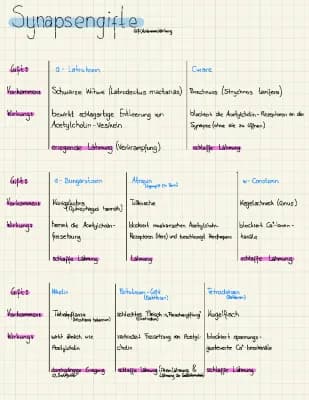 Synapsengifte
Gifte α - Latrotoxin Curare
Vorkommen Schwarze Witwe (Latrodectus mactans) Brechnuss (Strychnos toxifera)
Wirkung: bewirkt schlagartige Entleerung von blockiert die Acetylcholin-Rezeptoren an der
Acetylcholin-Vesikeln Synapse (ohne sie zu öffnen)
erregende Lähmung (Verkrampfung) schlaffe Lähmung
Gifte Atropin ω - Conotoxin
Vorkommen Königskobra Tollkirsche Kegelschnecke (Conus)
Wirkung: hemmt die Acetylcholin- blockiert muskarinischen Acetylcholin- blockiert Ca²⁺-Ionen-
freisetzung Rezeptoren (Herz) und kanäle
schlaffe Lähmung Lähmung schlaffe Lähmung
Gifte Nikotin Botulinum-Gift Tetrodotoxin
Vorkommen Tabakpflanze schlechtes Fleisch Kugelfisch
Wirkung: wirkt ähnlich wie verhindert Freisetzung von Acetyl- blockiert spannungs-
Acetylcholin cholin gesteuerte
Erregung schlaffe Lähmung schlaffe Lähmung